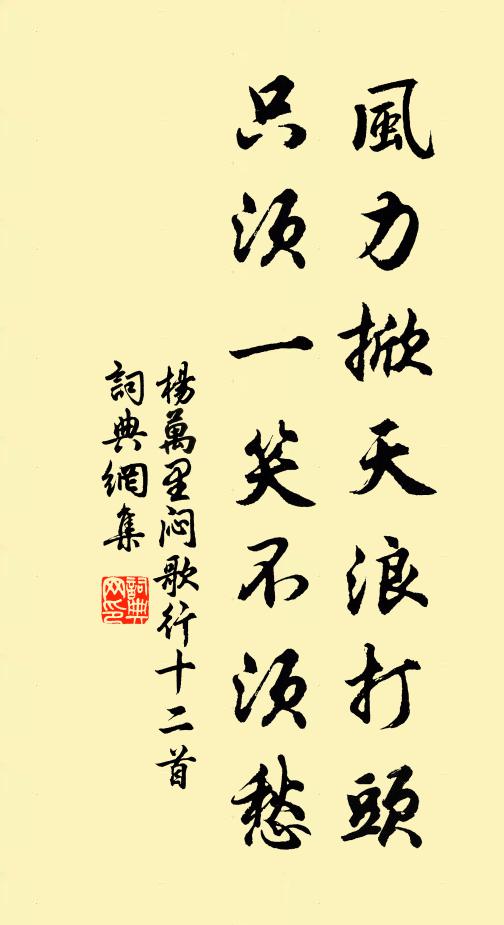 風力掀天浪打頭
只須一笑不須愁
楊萬里悶歌行十二首
詞典網集
詞典網印